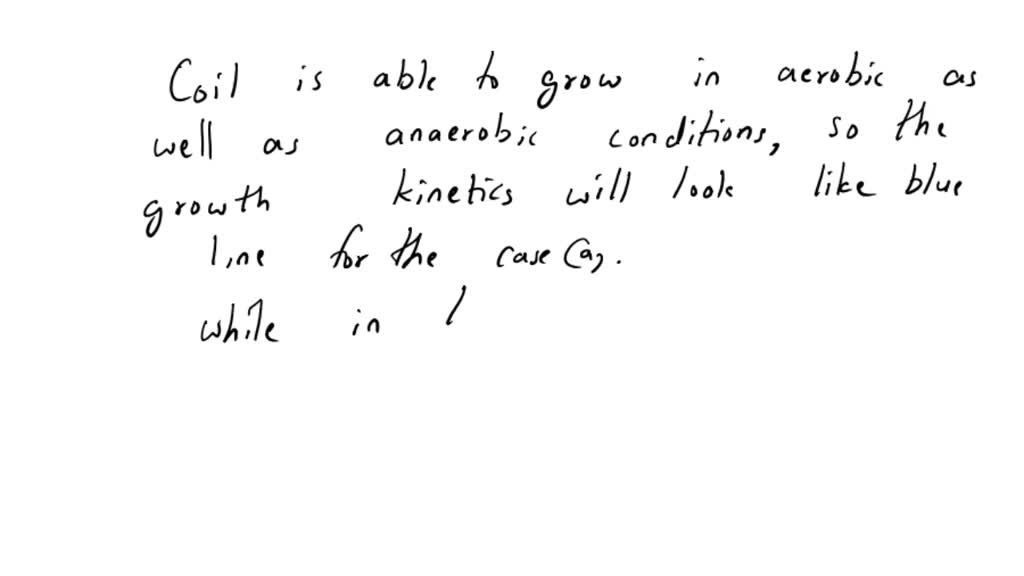 Coil is able to grow in aerobic as
well as anaerobic conditions, so the
growth kinetics will look like blue
line for the case (a).
while in